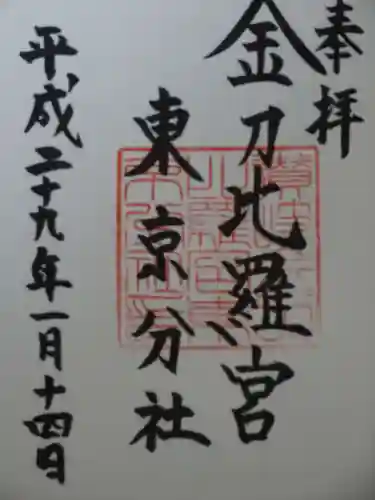 奉拝
金刀比羅宮
東京分社
平成二十九年一月十四日